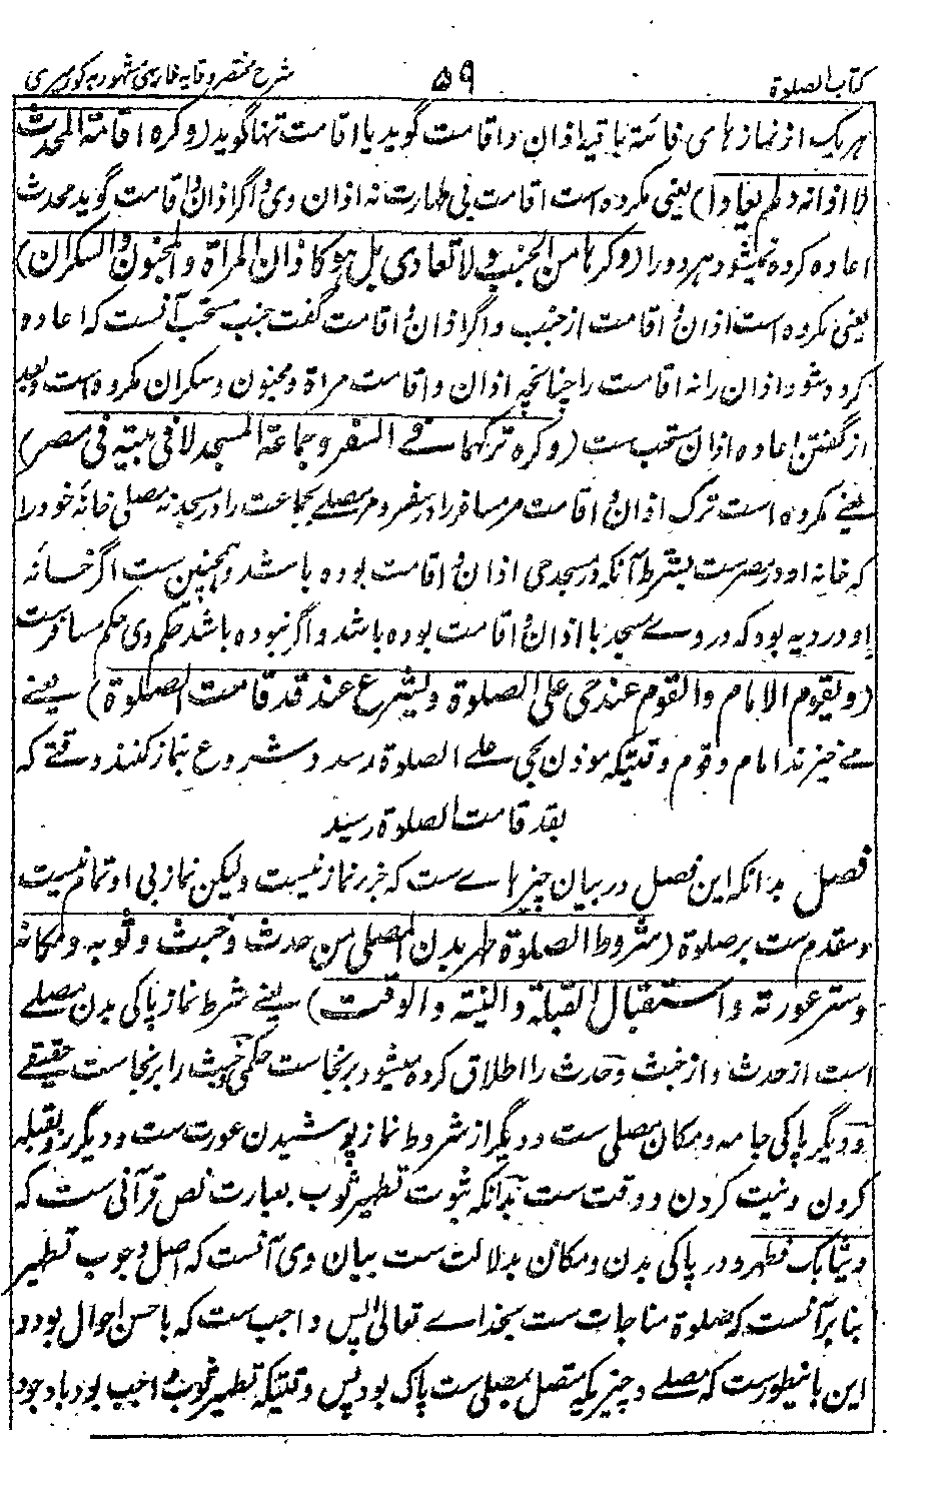 کتاب الصلوة ۵۹ شرح مختصر وقایه فارسی مشهور به کور میری
هریک از نمازهای فائته باقیه اذان و اقامت گوید یا اقامت تنها گوید (وکره اقامة المحدث
لا اذانه ولم یعادا) یعنی مکروه است اقامت بی طهارت نه اذان وی و اگر اذان و اقامت گوید محدث
اعاده کرده نمیشود هر دو را (وکرها من الجنب ولا تعاد ی بل هو کاذان المراة والمجنون والسکران)
یعنی مکروه است اذان و اقامت از جنب و اگر اذان و اقامت گفت جنب مستحب آنست که اعاده
کرده شود اذان را نه اقامت را چنانچه اذان و اقامت مراة و مجنون و سکران مکروه است و بعد
از گفتن اعاده اذان مستحب ست (وکره ترکهما فے السفر وجماعة المسجد لا فی بیته فی مصر)
یعنے مکروه است ترک اذان و اقامت مر مسافر را در سفر و مر مصلے بجماعت را در مسجد نه مصلی خانهٔ خود را
که خانه او در مصرست بشرط آنکه در مسجد حی اذان و اقامت بوده باشد و همچنین ست اگر خانه
او در دیه بود که در وے مسجد با اذان و اقامت بوده باشد و اگر نبوده باشد حکم وی حکم مسافرست
(ویقوم الامام والقوم عند حی علی الصلوة ویشرع عند قد قامت الصلوة) یعنے
مے خیزند امام و قوم وقتیکه موذن بحی علے الصلوة رسد و شروع بنماز کنند وقتے که
بقد قامت الصلوة رسید
فصل بدانکه این فصل در بیان چیزهاے ست که جزر نماز نیست ولیکن نماز بی او تمام نیست
و مقدم ست بر صلوة (شروط الصلوة طهر بدن المصلی من حدث وخبث وثوبه ومکانه
وستر عورته واستقبال القبلة والنیة والوقت) یعنے شرط نماز پاکی بدن مصلے
است از حدث و از خبث و حدث را اطلاق کرده میشود بر نجاست حکمی و خبث را بر نجاست حقیقے
و دیگر پاکی جامه و مکان مصلی ست و دیگر از شروط نماز پوشیدن عورت ست و دیگر رو بقبله
کردن و نیت کردن و وقت ست بدانکه ثبوت تطهیر ثوب بعبارت نص قرآنی ست که
وثیابک فطهر و در پاکی بدن و مکان بدلالت ست بیان وی آنست که اصل وجوب تطهیر
بنابر آنست که صلوة مناجات ست بخداے تعالی پس واجب ست که باحسن احوال بود و
این باینطورست که مصلے و چیزیکه متصل بمصلی ست پاک بود پس وقتیکه تطهیر ثوب واجب بود با وجود